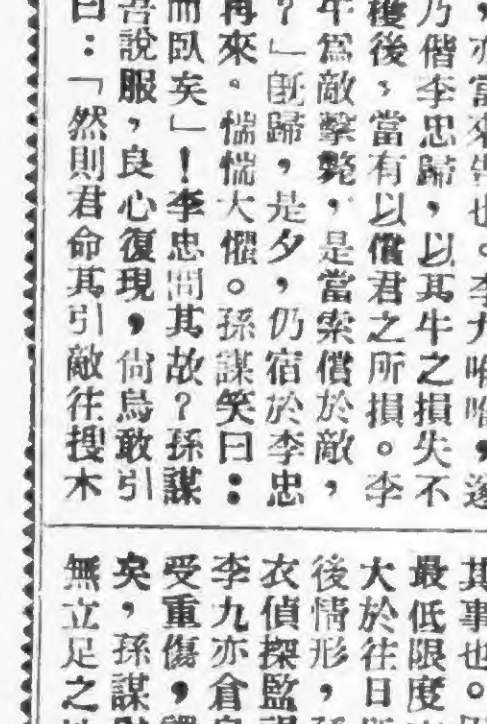 ，亦當來告也。李九唯唯，遂
乃偕李忠歸，以其牛之損失不
穫後，當有以償君之所損。李
牛爲敵擊斃，是當索償於敵，
？」旣歸，是夕，仍宿於李忠
再來。惴惴大懼。孫謀笑曰：
而臥矣」！李忠問其故？孫謀
吾說服，良心復現，尙烏敢引
曰：「然則君命其引敵往搜木
其事也。
最低限度
大於往日
後情形，
衣偵探監
李九亦倉
受重傷，
矣，孫謀
無立足之